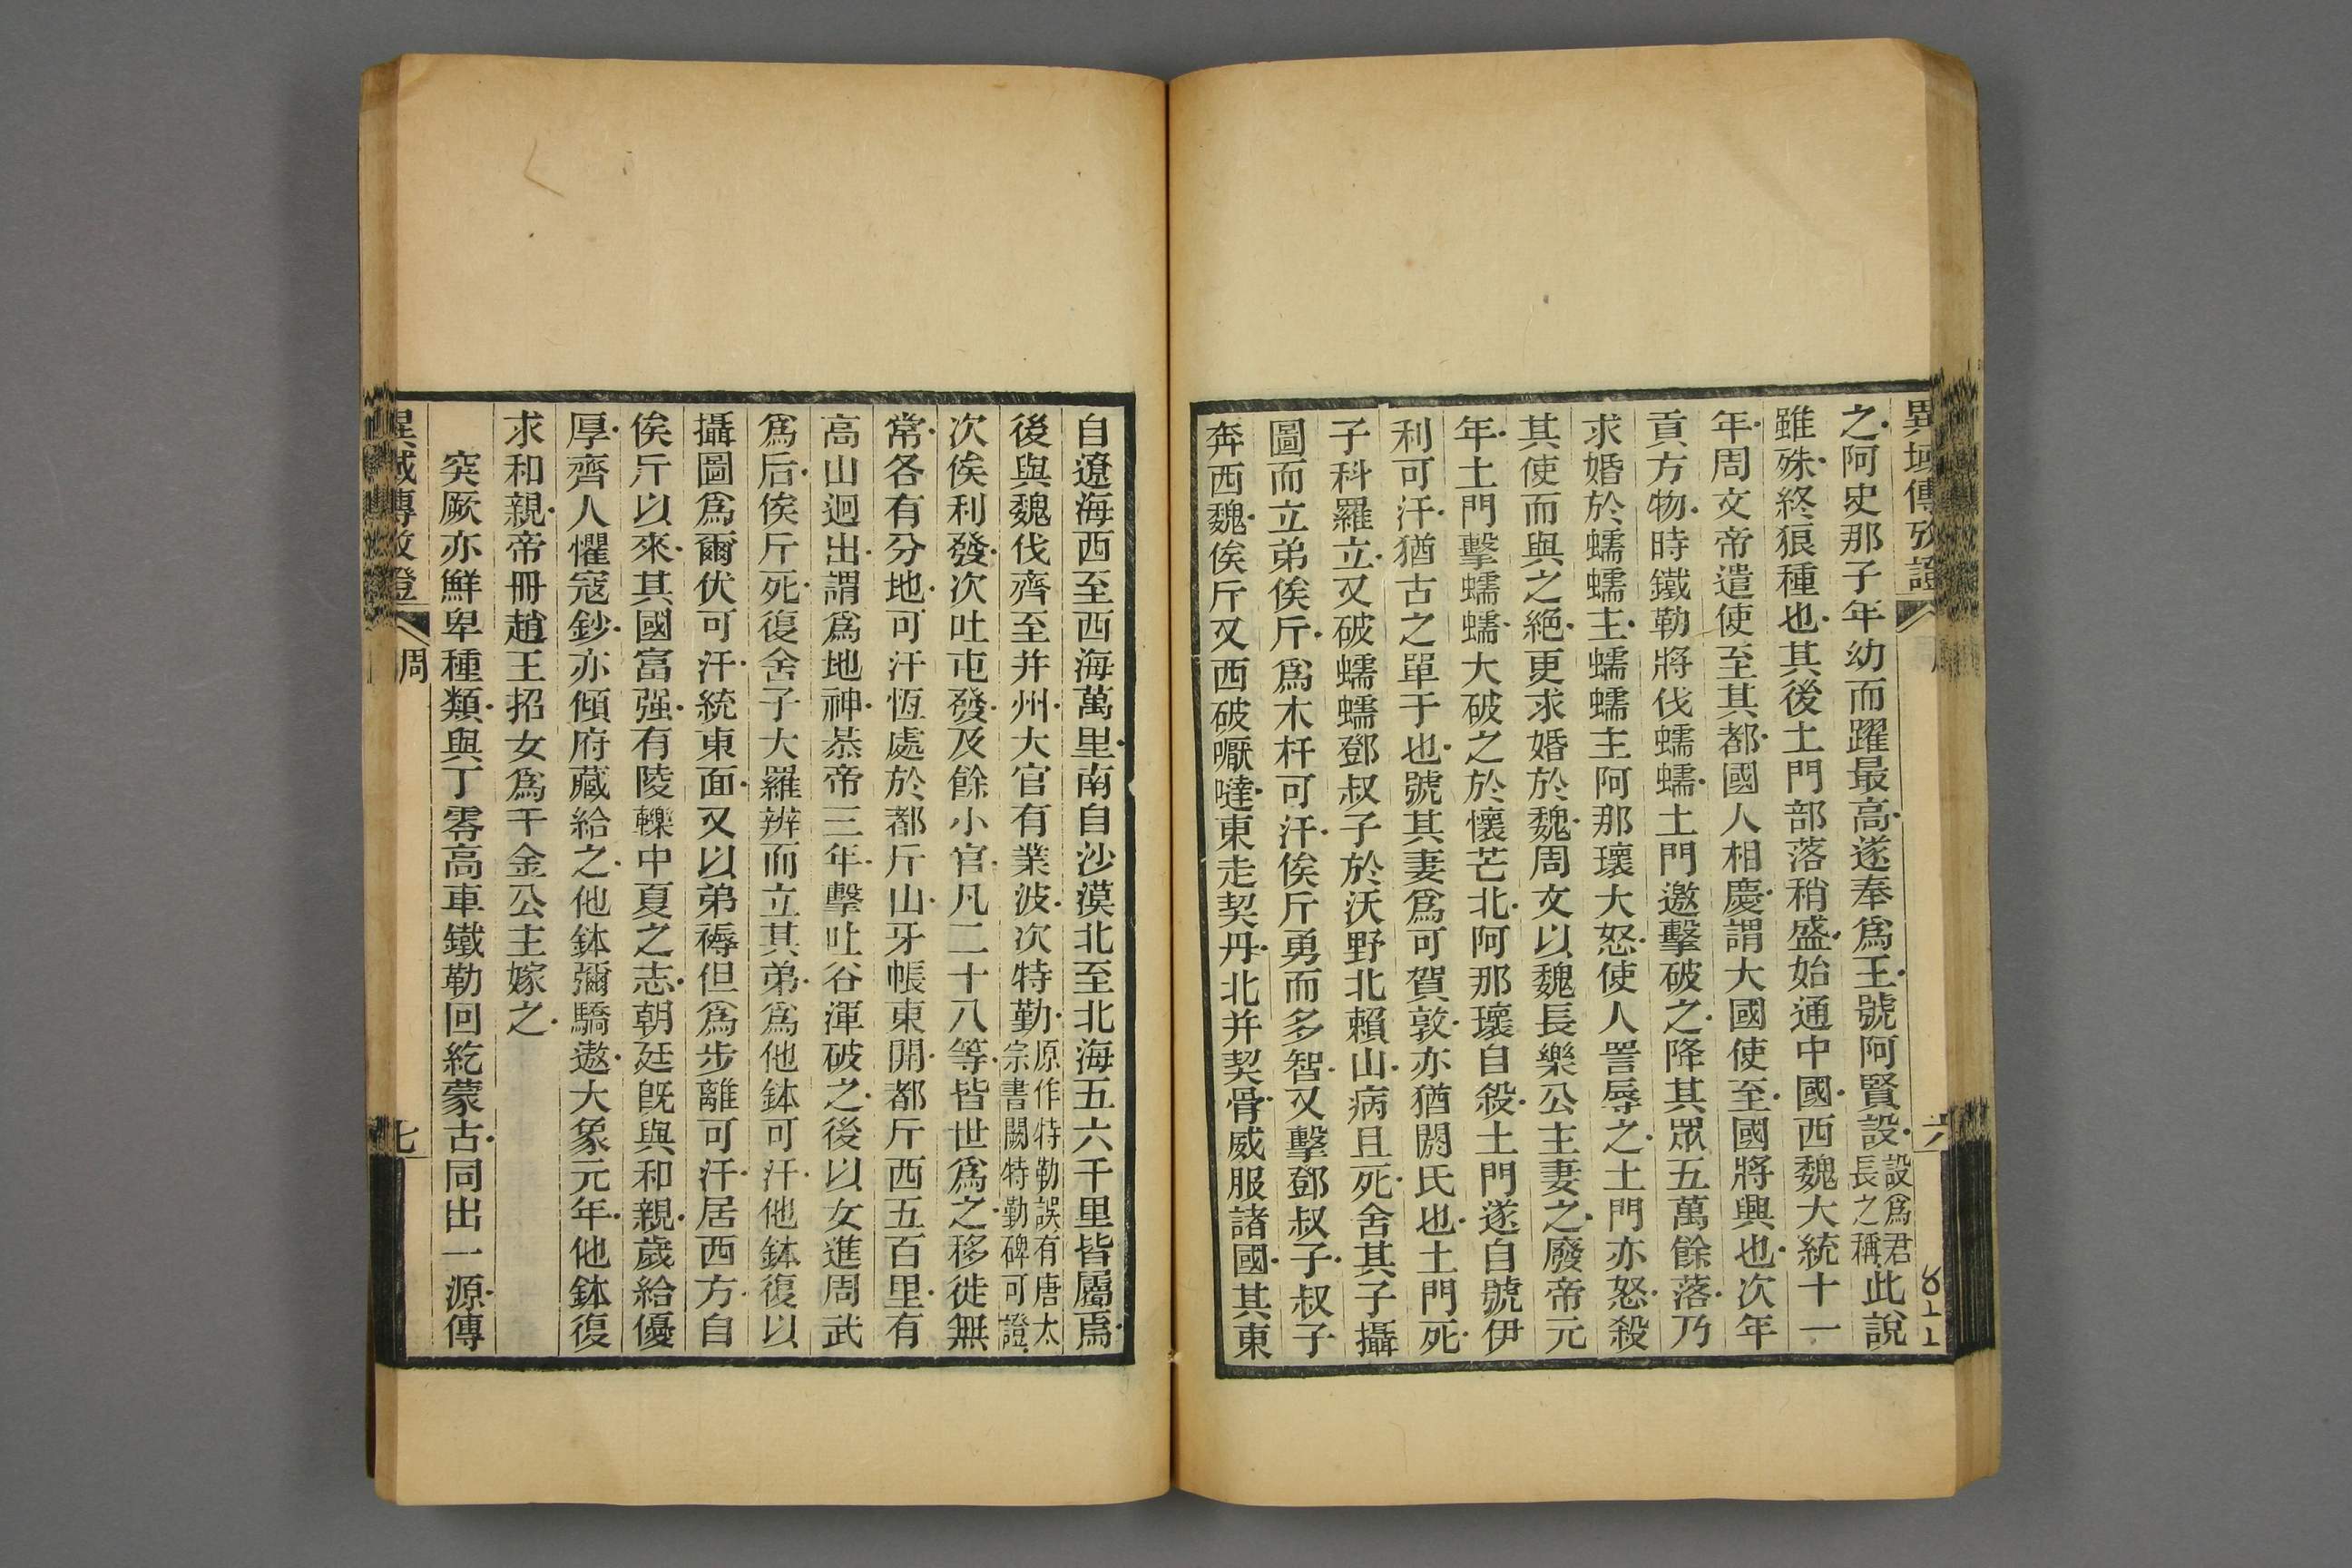 異域傳攷證
六
之阿史那子年幼而躍最高遂奉爲王號阿賢設設爲君長之稱此說
雖殊終狼種也其後土門部落稍盛始通中國西魏大統十一
年周文帝遣使至其都國人相慶謂大國使至國將興也次年
貢方物時鐵勒將伐蠕蠕土門邀擊破之降其眾五萬餘落乃
求婚於蠕蠕主蠕蠕主阿那瓌大怒使人詈辱之土門亦怒殺
其使而與之絶更求婚於魏周文以魏長樂公主妻之廢帝元
年土門擊蠕蠕大破之於懷芒北阿那瓌自殺土門遂自號伊
利可汗猶古之單于也號其妻爲可賀敦亦猶閼氏也土門死
子科羅立又破蠕蠕鄧叔子於沃野北賴山病且死舍其子攝
圖而立弟俟斤爲木杆可汗俟斤勇而多智又擊鄧叔子叔子
奔西魏俟斤又西破嚈噠東走契丹北并契骨威服諸國其東
自遼海西至西海萬里南自沙漠北至北海五六千里皆屬焉
後與魏伐齊至并州大官有業波次特勤原作特勒誤有唐太宗書闕特勤碑可證
次俟利發次吐屯發及餘小官凡二十八等皆世爲之移徙無
常各有分地可汗恆處於都斤山牙帳東開都斤西五百里有
高山迥出謂爲地神恭帝三年擊吐谷渾破之後以女進周武
爲后俟斤死復舍子大羅辨而立其弟爲他鉢可汗他鉢復以
攝圖爲爾伏可汗統東面又以弟褥但爲步離可汗居西方自
俟斤以來其國富强有陵轢中夏之志朝廷旣與和親歲給優
厚齊人懼寇鈔亦傾府藏給之他鉢彌驕遨大象元年他鉢復
求和親帝冊趙王招女爲千金公主嫁之
突厥亦鮮卑種類與丁零高車鐵勒回紇蒙古同出一源傳
異域傳攷證
周
七